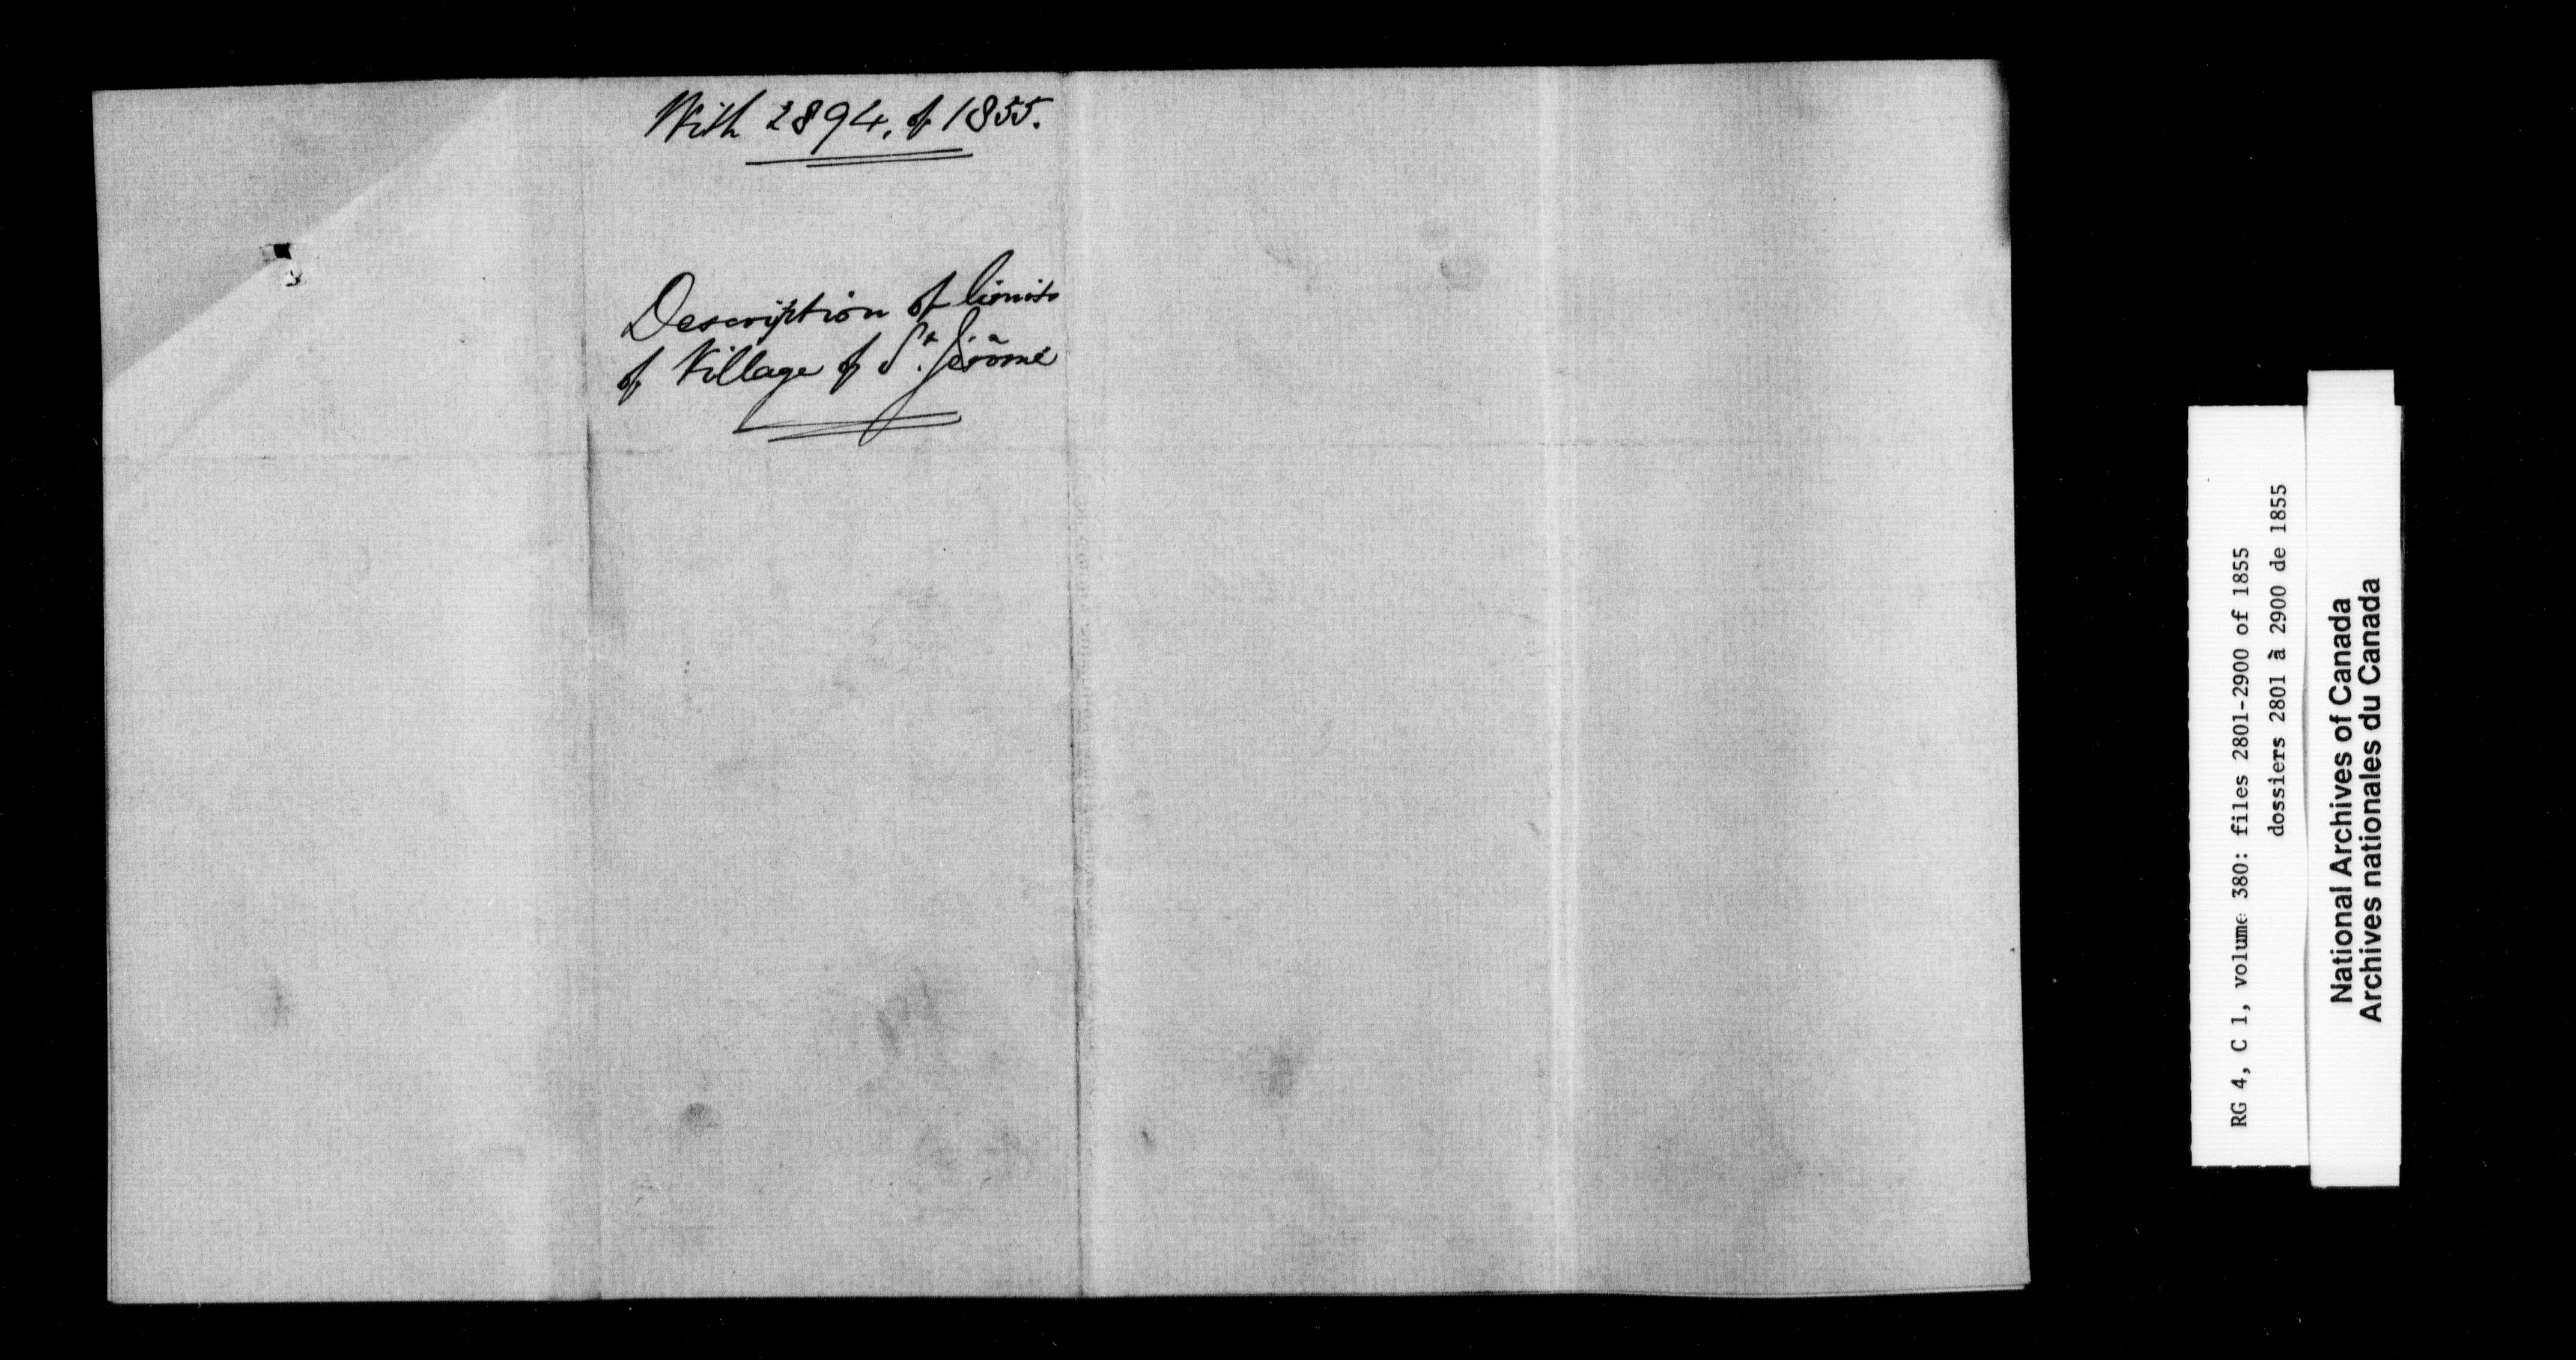 With 2894. of 1855.
Description of limits
of Village of St. Jérôme
RG 4, C 1, volume 380: files 2801-2900 of 1855
dossiers 2801 à 2900 de 1855
National Archives of Canada
Archives nationales du Canada